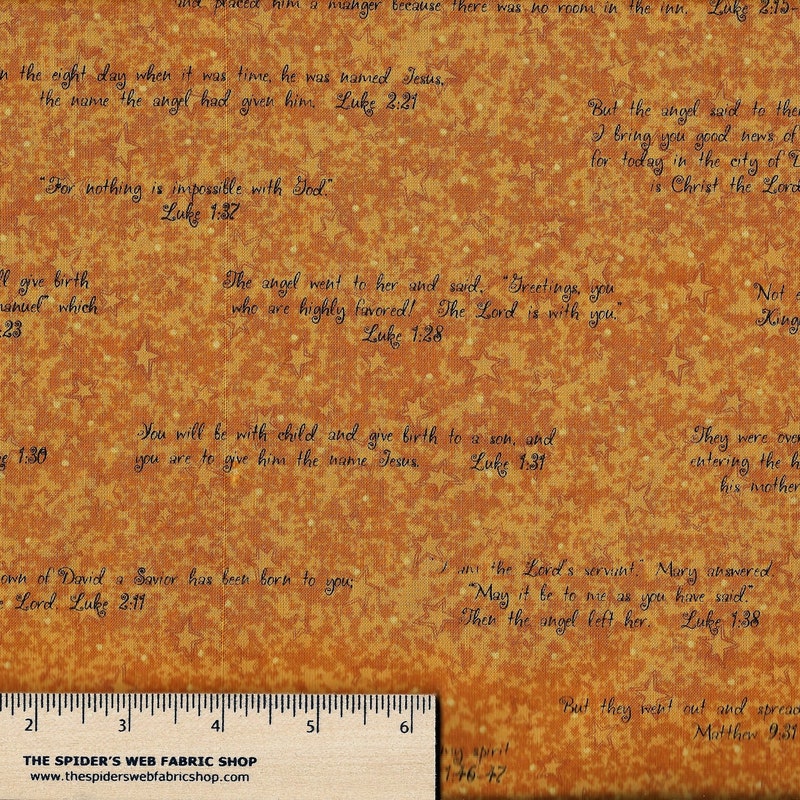 and placed him a manger because there was no room in the inn. Luke 2:15-
n the eight day when it was time, he was named Jesus,
the name the angel had given him. Luke 2:21
But the angel said to the
I bring you good news of
for today in the city of D
is Christ the Lord
"For nothing is impossible with God"
Luke 1:37
ll give birth
anuel" which
:23
The angel went to her and said, "Greetings, you
who are highly favored! The Lord is with you."
Luke 1:28
Not
King
e 1:30
You will be with child and give birth to a son, and
you are to give him the name Jesus. Luke 1:31
They were over
entering the h
his mother
own of David a Savior has been born to you;
e Lord. Luke 2:11
I am the Lord's servant," Mary answered
"May it be to me as you have said."
Then the angel left her. Luke 1:38
But they went out and spread
Matthew 9:31
my spirit
1:46-47
2 3 4 5 6
THE SPIDER'S WEB FABRIC SHOP
www.thespiderswebfabricshop.com